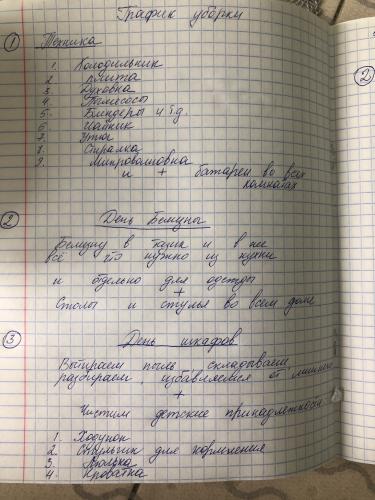 График уборки
1
Техника
1. Холодильник
2. плита
3. Духовка
4. Пылесосы
5. Блендеры и т.д.
6 Чайник
7. Утюг
8. Стиралка
9. Микроволновка
и + батареи во всех
комнатах
2
День Белизны
Белизну в тазик и в нее
всё что нужно из кухни
и отдельно для одежды
+
Столы и стулья во всем доме
3
День шкафов
Вытираем пыль, складываем,
разбираем, избавляемся от лишнего
+
Чистим детские принадлежности
1. Ходунок
2 Стульчик для кормления
3. Люлька
4. Кроватка
2